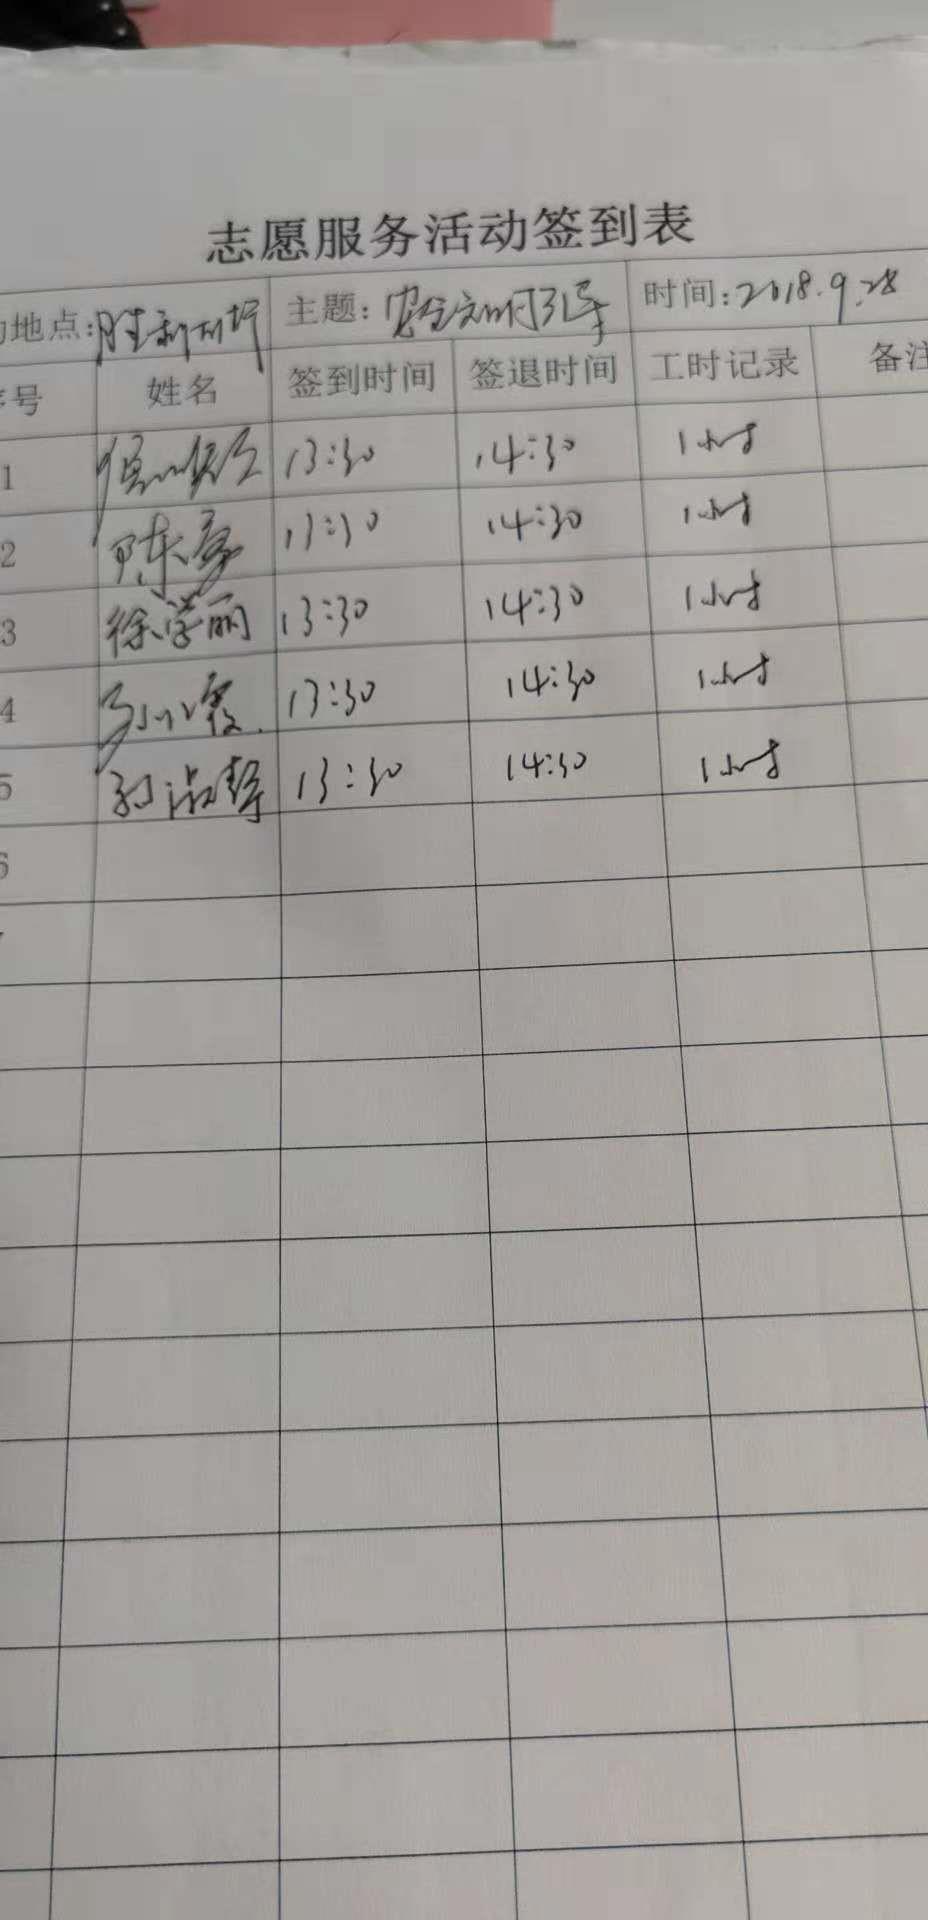 志愿服务活动签到表
地点: 胜利 主题: 安全文明引导 时间: 2018.9.28
号 姓名 签到时间 签退时间 工时记录 备注
1 13:30 14:30 1小时
2 陈 13:30 14:30 1小时
3 徐学丽 13:30 14:30 1小时
4 霞 13:30 14:30 1小时
5 13:30 14:30 1小时
6